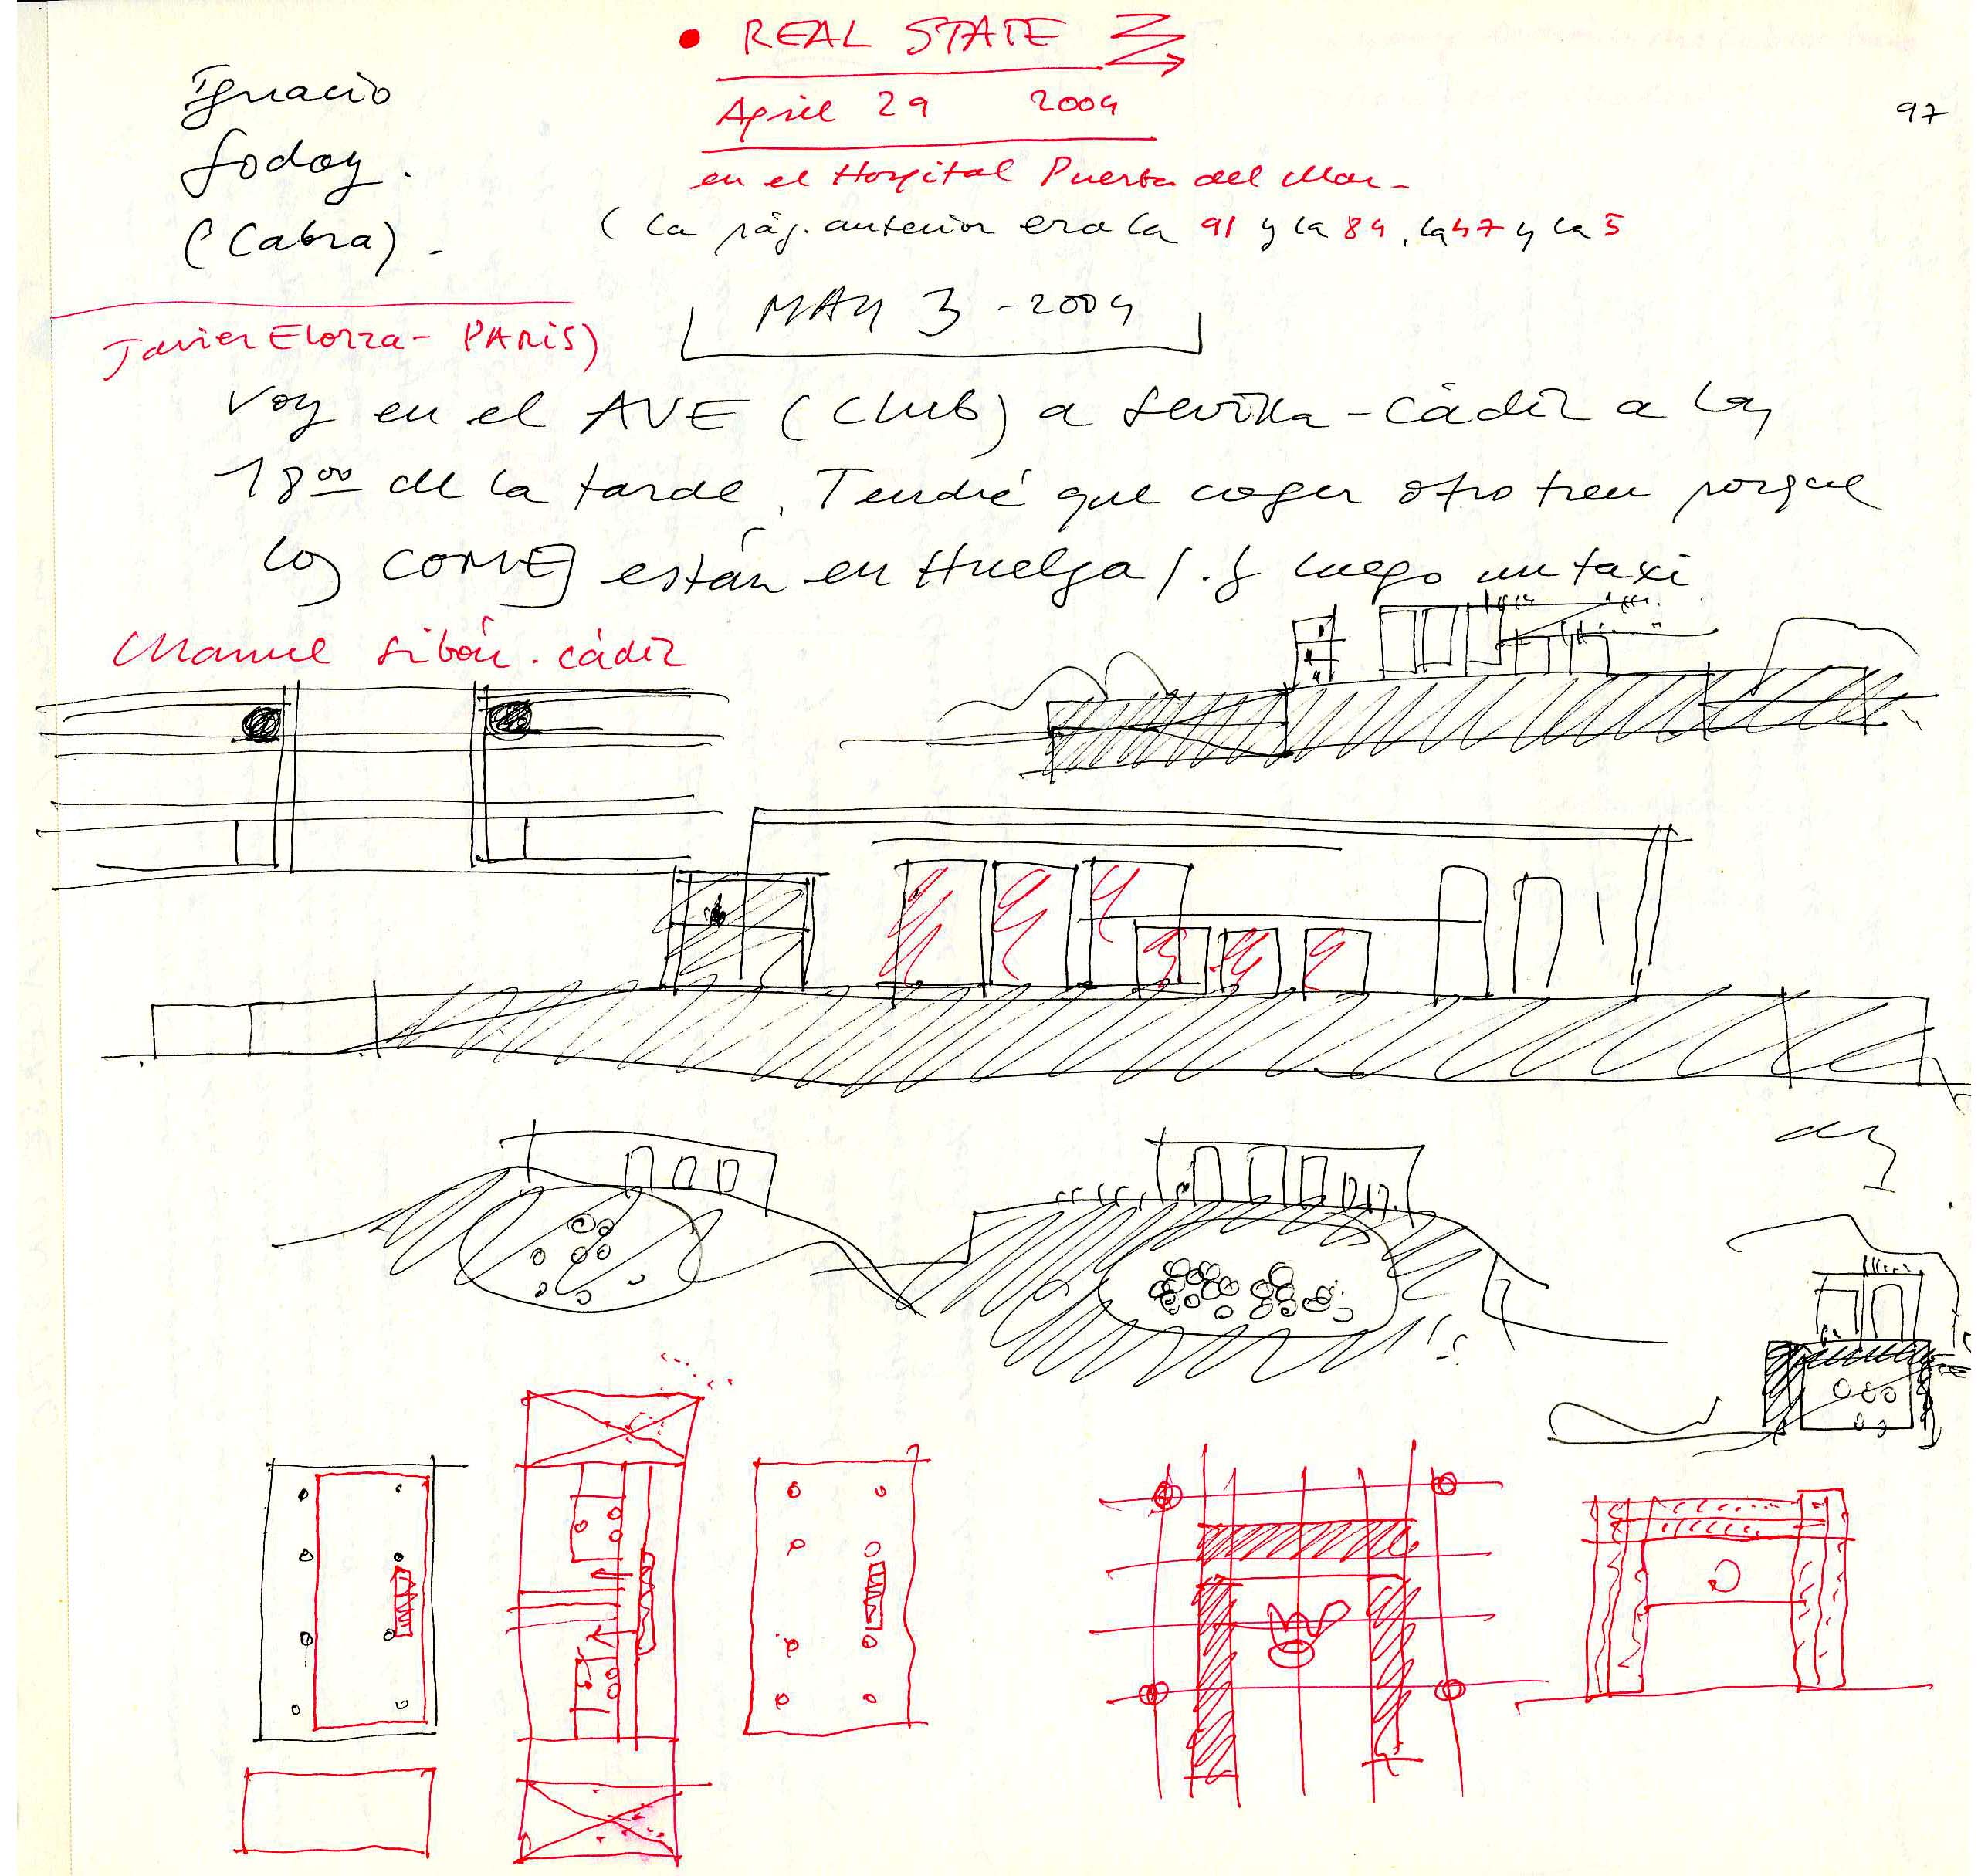 • REAL STATE
April 29 2004
en el Hospital Puerta del Mar -
(La pág. anterior era la 91 y la 84, la 47 y la 5
97
Ignacio
Godoy.
(Cabra).
Javier Elorza - PARIS)
MAY 3 - 2004
Voy en el AVE (Club) a Sevilla - Cádiz a las
18:00 de la tarde. Tendré que coger otro tren porque
los COMES están en Huelga /. y luego un taxi
Manuel Gibón. Cádiz